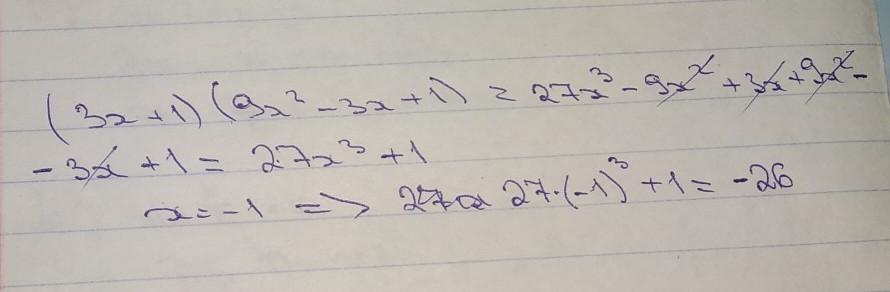 (3x+1)(9x² - 3x + 1) = 27x³ - 9x² + 3x + 9x² -
- 3x + 1 = 27x³ + 1
x = -1 => 27·(-1)³ + 1 = -26